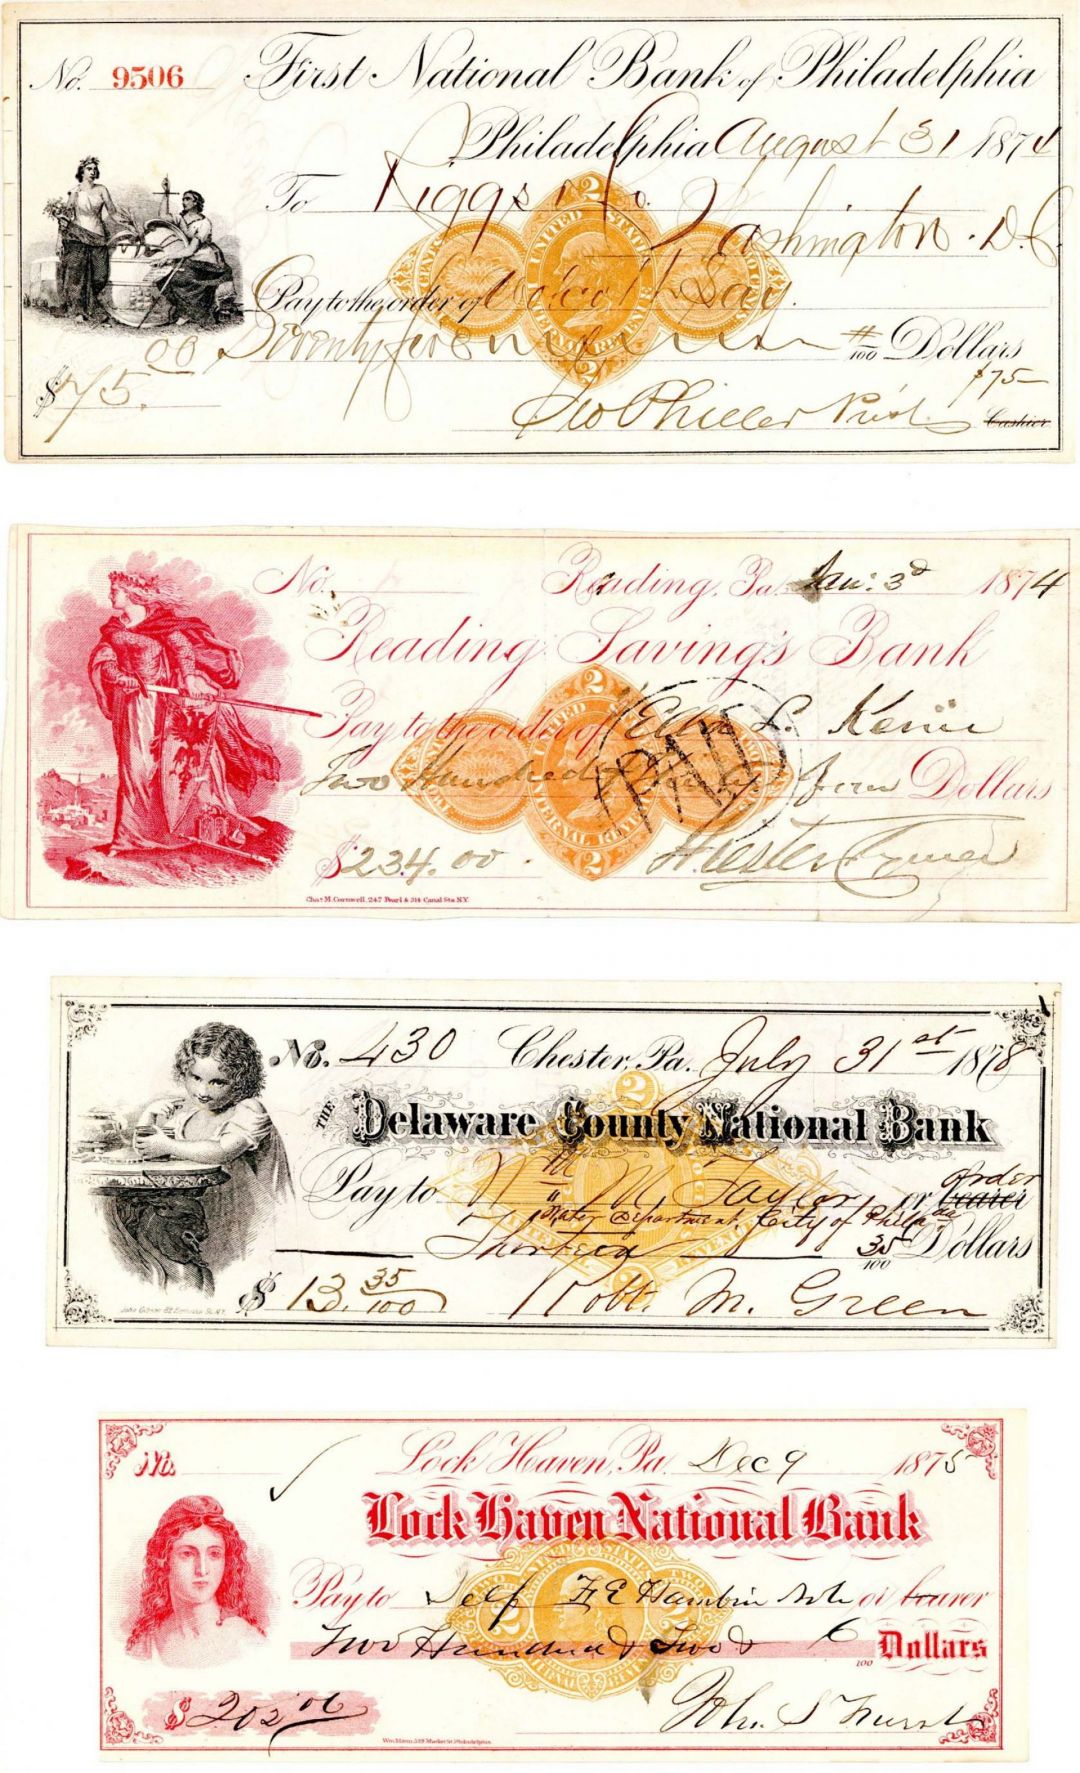 No. 9506 First National Bank of Philadelphia
Philadelphia August 31 1874
To Riggs & Co. Washington. D.C.
Pay to the order of
Seventy five 00/100 Dollars
$75. 00
$75—
Cashier
2 UNITED STATES INTERNAL REVENUE 2
No. Reading, Pa. Jan: 3d 1874
Reading Savings Bank
Pay to the order of Ella L.
PAID
Two Hundred & Thirty four Dollars
$234.00
Chas M. Cornwell, 247 Pearl & 314 Canal Sts N.Y.
2 UNITED INTERNAL REVENUE 2
No. 430 Chester, Pa. July 31st 1878
THE Delaware County National Bank
Pay to Wm M. Taylor or bearer order
Water Department, City of Phila
Thirteen 35/100 Dollars
$13. 35/100 Robt. M. Green
No. Lock Haven, Pa. Dec 9 1875
Lock Haven National Bank
Pay to Self or bearer
Two Hundred & Two & 6/100 Dollars
$202 06 John S Furst